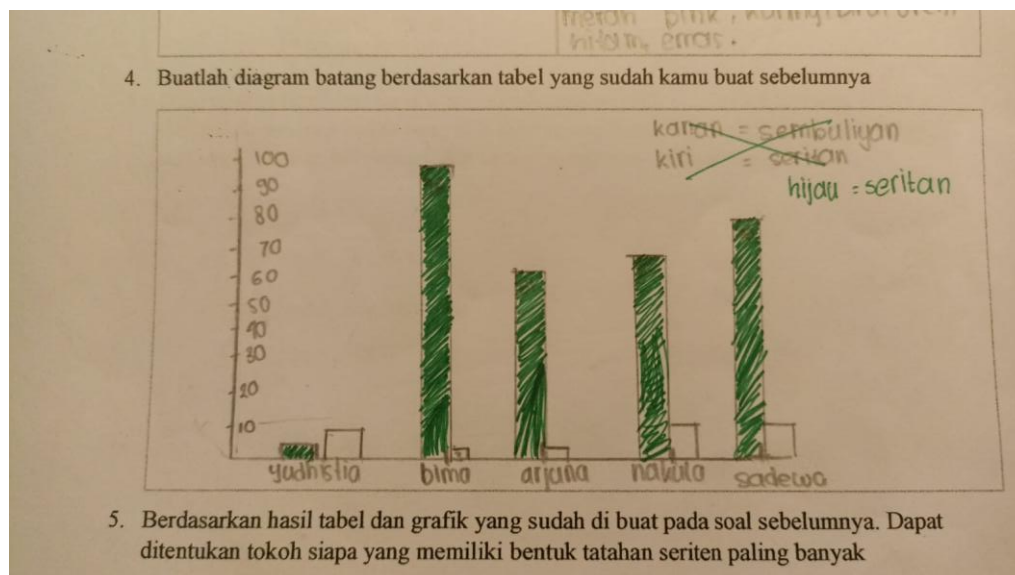 merah pink, kuning,
hitam, emas.
4. Buatlah diagram batang berdasarkan tabel yang sudah kamu buat sebelumnya
kanan = sembuliyan
kiri = seritan
hijau = seritan
100
90
80
70
60
50
40
30
20
10
yudhistia bima arjuna nakula sadewa
5. Berdasarkan hasil tabel dan grafik yang sudah di buat pada soal sebelumnya. Dapat
ditentukan tokoh siapa yang memiliki bentuk tatahan seriten paling banyak